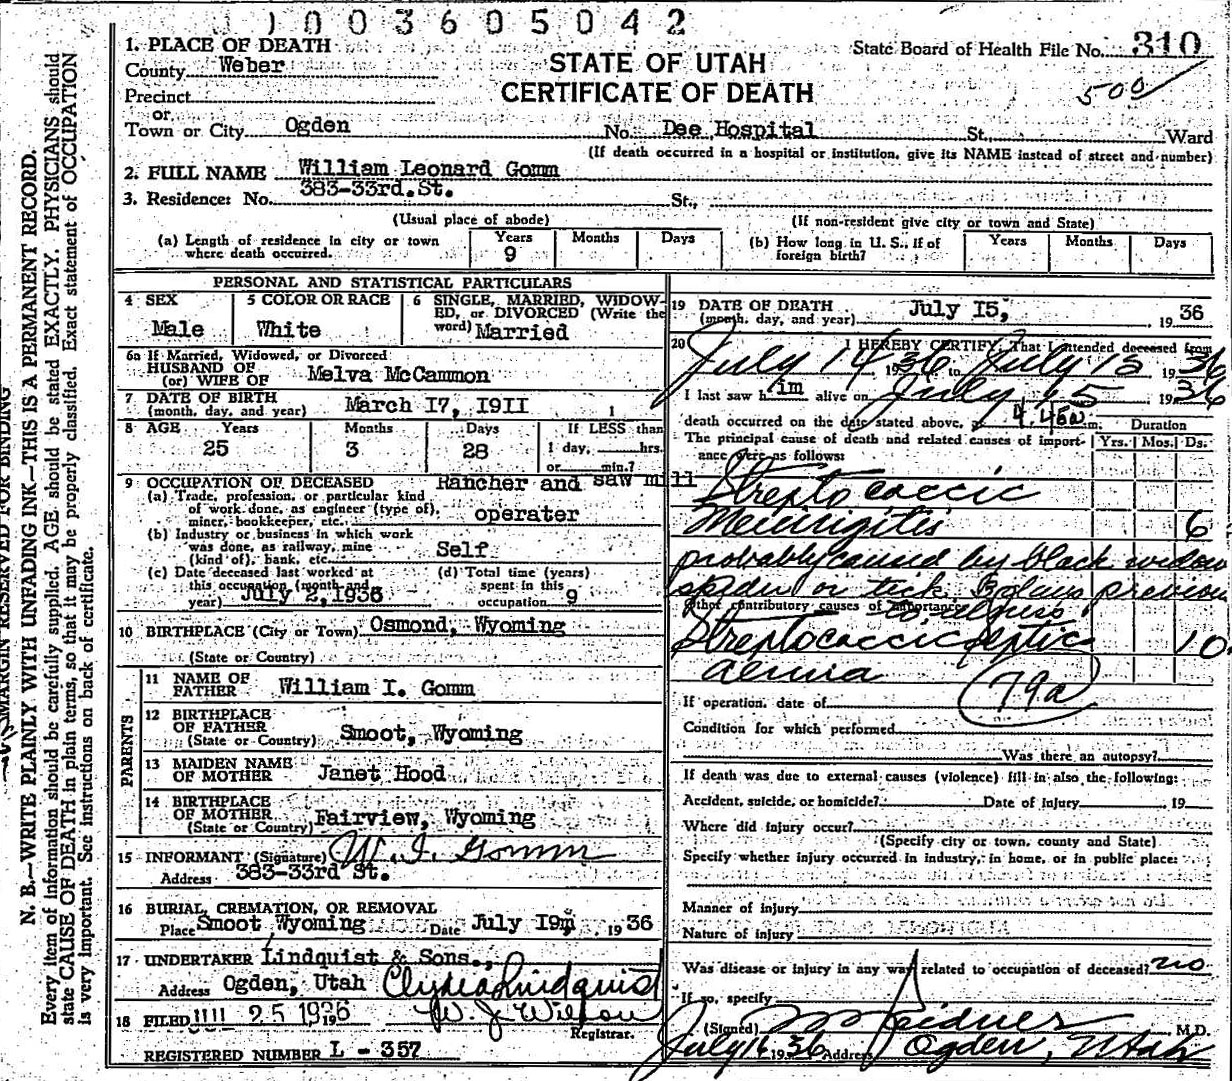 1003605042
State Board of Health File No. 310
500
STATE OF UTAH
CERTIFICATE OF DEATH
1. PLACE OF DEATH
County Weber
Precinct
or
Town or City Ogden No. Dee Hospital St., Ward
(If death occurred in a hospital or institution, give its NAME instead of street and number)
2. FULL NAME William Leonard Gomm
3. Residence: No. 383-33rd.St. St.,
(Usual place of abode) (If non-resident give city or town and State)
(a) Length of residence in city or town where death occurred. Years 9 Months Days
(b) How long in U. S., if of foreign birth? Years Months Days
PERSONAL AND STATISTICAL PARTICULARS
4 SEX Male
5 COLOR OR RACE White
6 SINGLE, MARRIED, WIDOW-
ED, or DIVORCED (Write the
word) Married
6a If Married, Widowed, or Divorced
HUSBAND OF
(or) WIFE OF Melva McCammon
7 DATE OF BIRTH
(month, day, and year) March I7, I9II
8 AGE Years 25 Months 3 Days 28 If LESS than
1 day, hrs.
or min.?
9 OCCUPATION OF DECEASED Rancher and saw mill
(a) Trade, profession, or particular kind
of work done, as engineer (type of),
miner, bookkeeper, etc. operater
(b) Industry or business in which work
was done, as railway, mine
(kind of), bank, etc. Self
(c) Date deceased last worked at
this occupation (month and
year) July 2, 1936
(d) Total time (years)
spent in this
occupation 9
10 BIRTHPLACE (City or Town) Osmond, Wyoming
(State or Country)
PARENTS
11 NAME OF
FATHER William I. Gomm
12 BIRTHPLACE
OF FATHER
(State or Country) Smoot, Wyoming
13 MAIDEN NAME
OF MOTHER Janet Hood
14 BIRTHPLACE
OF MOTHER
(State or Country) Fairview, Wyoming
15 INFORMANT (Signature) W. I. Gomm
Address 383-33rd St.
16 BURIAL, CREMATION, OR REMOVAL
Place Smoot Wyoming Date July I9, 1936
17 UNDERTAKER Lindquist & Sons.,
Address Ogden, Utah Clyde Lindquist
18 FILED 25 1936 W. J. Wilson
Registrar.
REGISTERED NUMBER L - 357
19 DATE OF DEATH
(month, day, and year) July I5, 1936
20 I HEREBY CERTIFY, That I attended deceased from
July 14 1936 to July 15 1936
I last saw him alive on July 15 1936
death occurred on the date stated above, at 4.45a m. Duration
The principal cause of death and related causes of import-
ance were as follows: Yrs. Mos. Ds.
Streptococcic
Meningitis 6
probably caused by black widow
spider or tick 3 days previous
to illness
Other contributory causes of importance
Streptococcic septic 10
aemia
79a
If operation, date of
Condition for which performed
Was there an autopsy?
If death was due to external causes (violence) fill in also the following:
Accident, suicide, or homicide? Date of injury , 19
Where did injury occur?
(Specify city or town, county and State)
Specify whether injury occurred in industry, in home, or in public place:
Manner of injury
Nature of injury
Was disease or injury in any way related to occupation of deceased? no
If so, specify
(Signed) M.D.
July 16 1936 Address Ogden, Utah
MARGIN RESERVED FOR BINDING
N. B.—WRITE PLAINLY WITH UNFADING INK—THIS IS A PERMANENT RECORD.
Every item of information should be carefully supplied. AGE should be stated EXACTLY. PHYSICIANS should
state CAUSE OF DEATH in plain terms, so that it may be properly classified. Exact statement of OCCUPATION
is very important. See instructions on back of certificate.